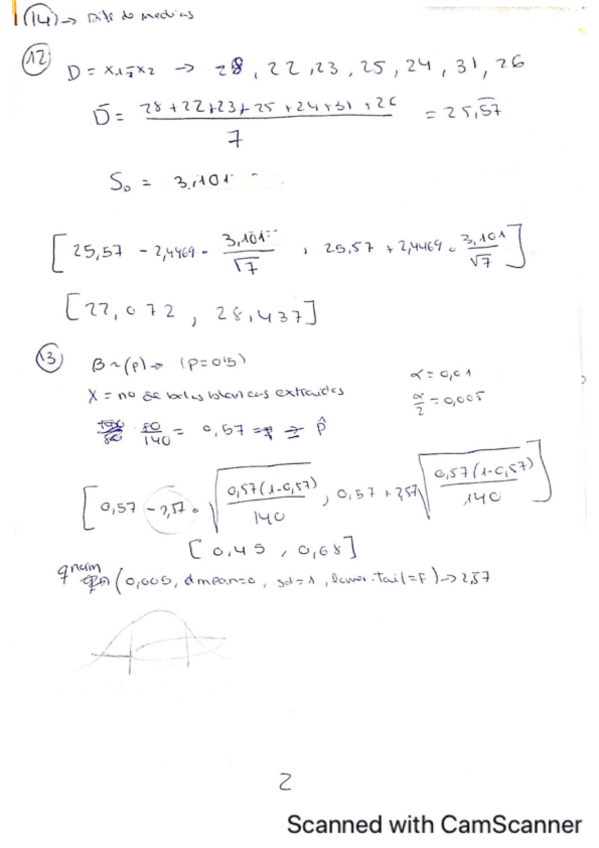 (14) → Dife de medias
(12) D = x1 - x2 → 28, 22, 23, 25, 24, 31, 26
D̄ = 28+22+23+25+24+31+26 / 7 = 25,57
S_D = 3,101...
[25,57 - 2,4469 · 3,101... / √7 , 25,57 + 2,4469 · 3,101 / √7]
[22,072 , 28,437]
(13) B ~ (p) → (p=0'5)
α = 0,01
X = no de bolas blancas extraidas
α/2 = 0,005
80/140 = 0,57 = p̂
[0,57 - 2,57 · √(0,57(1-0,57)/140) , 0,57 + 2,57 √(0,57(1-0,57)/140)]
[0,45 , 0,68]
qnorm (0,005, mean=0, sd=1, lower.tail=F) → 2,57
2
Scanned with CamScanner